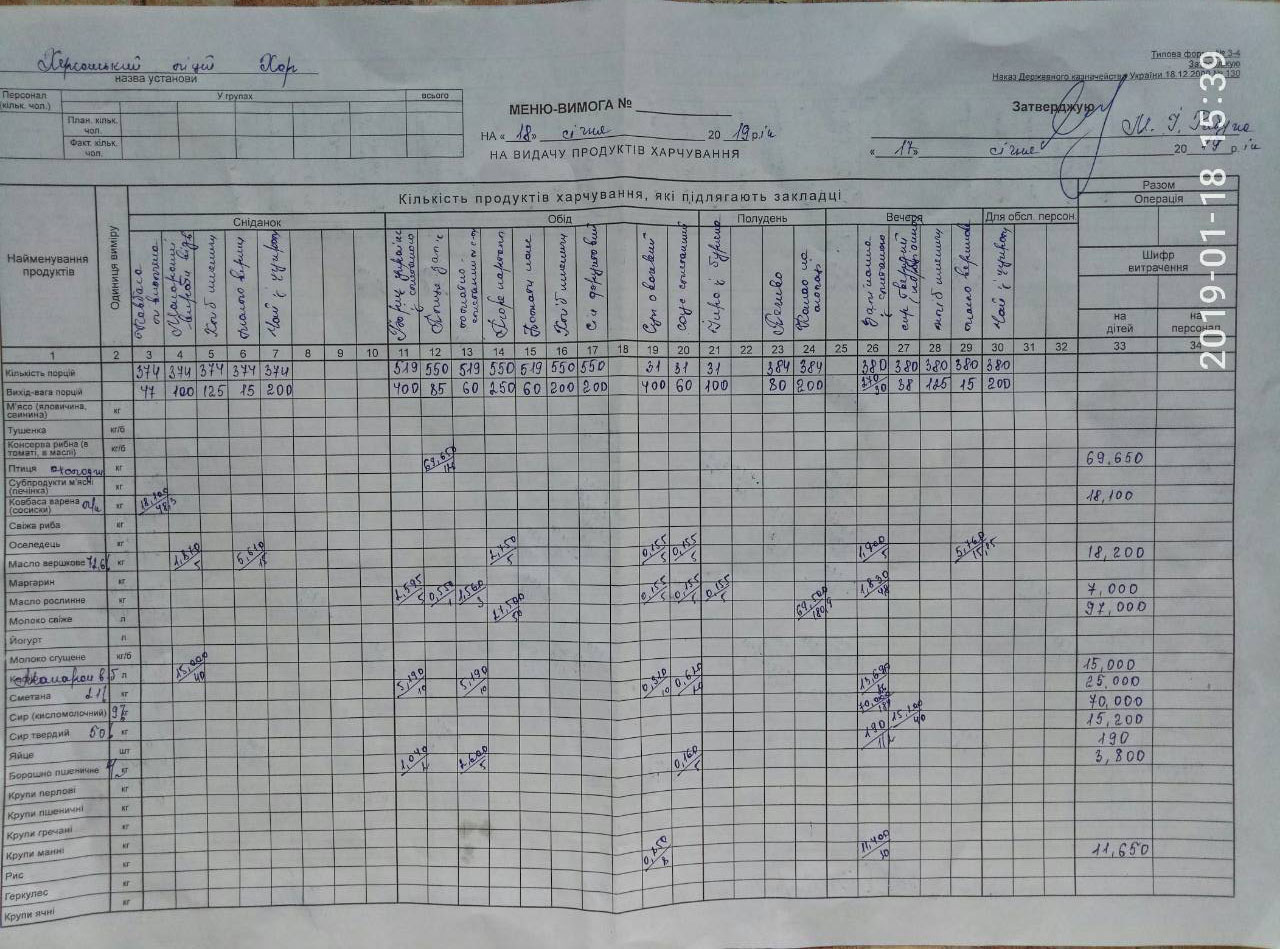 Херсонський ліцей Хор
назва установи
Типова форма № З-4
Наказ Державного казначейства України 18.12.2000 № 130
Персонал (кільк. чол.)
У групах
всього
План. кільк. чол.
Факт. кільк. чол.
МЕНЮ-ВИМОГА №
НА «18» січня 2019 рік
НА ВИДАЧУ ПРОДУКТІВ ХАРЧУВАННЯ
Затверджую
М. І.
«17» січня 2019 рік
2019-01-18 15:39
Кількість продуктів харчування, які підлягають закладці
Разом
Операція
Шифр витрачення
на дітей
на персонал
Найменування продуктів
Одиниця виміру
Сніданок
Обід
Полудень
Вечеря
Для обсл. персон.
Ковбаса
Макаронні вироби відв
Хліб пшеничн
Масло верш
Чай з цукром
Хліб пшеничн
Сік фруктовий
Пиріг
Какао на
Запіканка з сметаною
сир твердий
хліб пшеничн
масло вершков
Чай з цукром
1 2 3 4 5 6 7 8 9 10 11 12 13 14 15 16 17 18 19 20 21 22 23 24 25 26 27 28 29 30 31 32 33 34
Кількість порцій 374 374 374 374 374 519 550 519 550 519 550 550 31 31 31 384 384 380 380 380 380 380
Вихід-вага порцій 47 100 125 15 200 400 85 60 250 60 200 200 400 60 100 80 200 170/30 38 125 15 200
М'ясо (яловичина, свинина) кг
Тушенка кг/б
Консерва рибна (в томаті, в маслі) кг/б
Птиця кг 69,650 69,650
Субпродукти м'ясні (печінка) кг
Ковбаса варена (сосиски) кг 18,100 18,100
Свіжа риба кг
Оселедець кг
Масло вершкове 72,6 кг 1,870/5 5,610/15 2,750/5 0,155/5 0,155/5 1,900/5 5,760 18,200
Маргарин кг
Масло рослинне кг 2,595/5 0,550/1 1,560/3 0,155/5 0,155/5 0,155/5 1,830 7,000
Молоко свіже л 27,500/50 69,500 97,000
Йогурт л
Молоко сгущене кг/б
Макарон в б л 15,000/40 15,000
Сметана 21% кг 5,190/10 5,190/10 0,310/10 0,620/20 13,690 25,000
Сир (кисломолочний) 9% кг 70,000 70,000
Сир твердий 50% кг 15,200/40 15,200
Яйце шт 190 190
Борошно пшеничне кг 1,040/2 2,600/5 0,160/5 3,800
Крупи перлові кг
Крупи пшеничні кг
Крупи гречані кг
Крупи манні кг 0,250/8 11,400/30 11,650
Рис кг
Геркулес кг
Крупи ячні кг